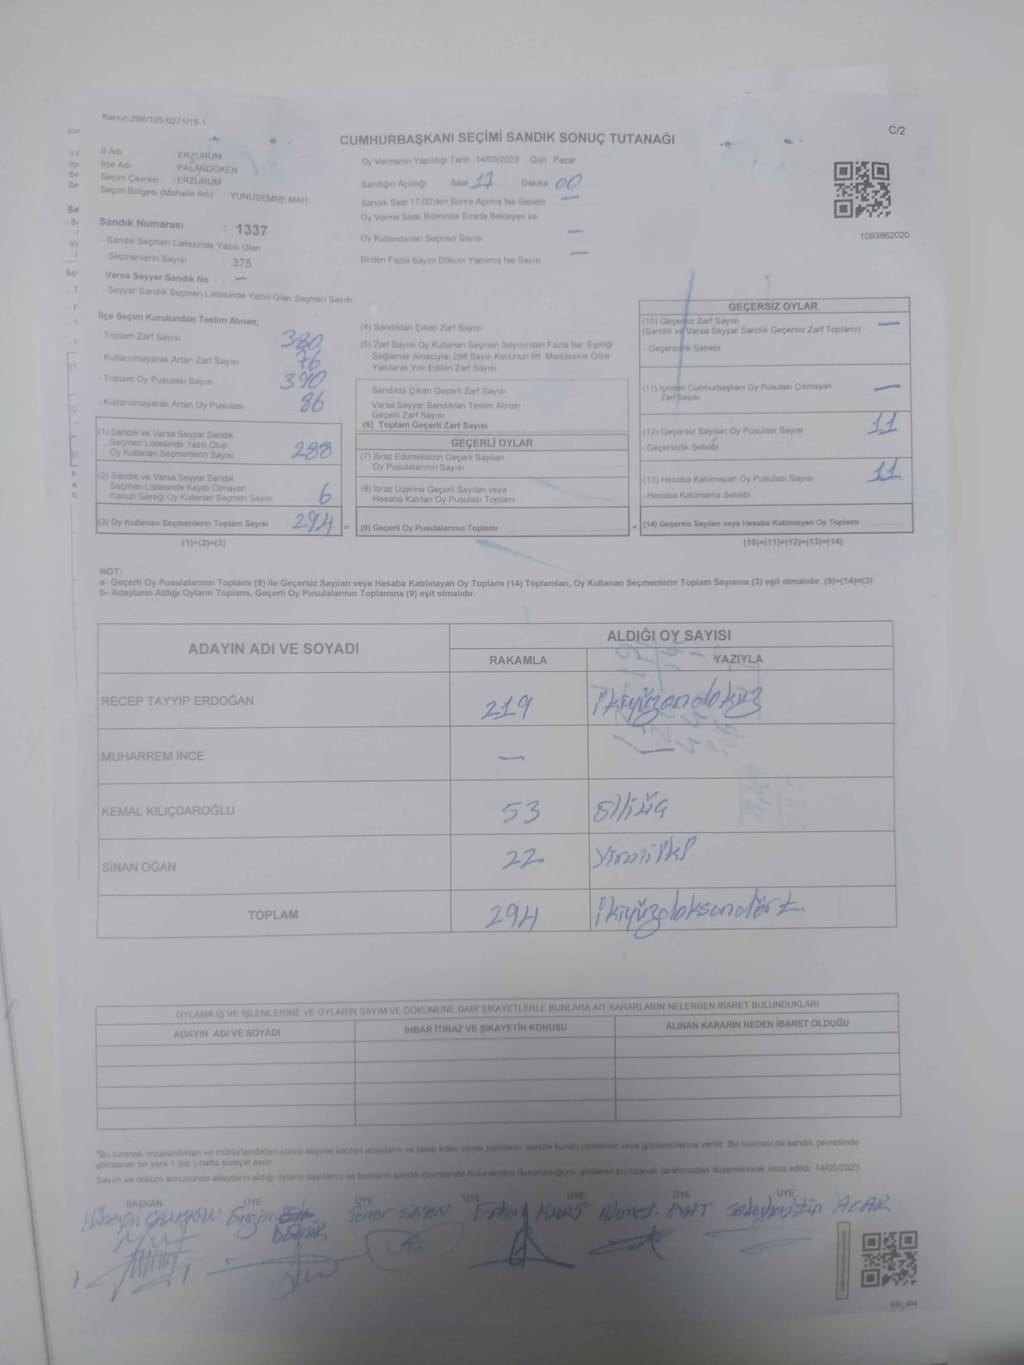 Kanun:298/105;6271/18-1
CUMHURBAŞKANI SEÇİMİ SANDIK SONUÇ TUTANAĞI
C/2
İl Adı : ERZURUM
İlçe Adı : PALANDÖKEN
Seçim Çevresi : ERZURUM
Seçim Bölgesi (Mahalle Adı) : YUNUSEMRE MAH
Oy Vermenin Yapıldığı Tarih 14/05/2023 Gün : Pazar
Sandığın Açıldığı Saat 17 Dakika 00
Sandık Saat 17:00'den Sonra Açılmış İse Sebebi —
Oy Verme Saati Bitiminde Sırada Bekleyen ve
Oy Kullandırılan Seçmen Sayısı —
Birden Fazla Sayım Döküm Yapılmış İse Sayısı —
1093862020
Sandık Numarası : 1337
- Sandık Seçmen Listesinde Yazılı Olan
Seçmenlerin Sayısı : 375
Varsa Seyyar Sandık No —
- Seyyar Sandık Seçmen Listesinde Yazılı Olan Seçmen Sayısı
İlçe Seçim Kurulundan Teslim Alınan;
- Toplam Zarf Sayısı 380
- Kullanılmayarak Artan Zarf Sayısı 76
- Toplam Oy Pusulası Sayısı 390
- Kullanılmayarak Artan Oy Pusulası 86
(1) Sandık ve Varsa Seyyar Sandık
Seçmen Listesinde Yazılı Olup
Oy Kullanan Seçmenlerin Sayısı 288
(2) Sandık ve Varsa Seyyar Sandık
Seçmen Listesinde Kayıtlı Olmayan
Kanun Gereği Oy Kullanan Seçmen Sayısı 6
(3) Oy Kullanan Seçmenlerin Toplam Sayısı 294 =
(1)+(2)=(3)
(4) Sandıktan Çıkan Zarf Sayısı
(5) Zarf Sayısı Oy Kullanan Seçmen Sayısından Fazla İse, Eşitliği
Sağlamak Amacıyla, 298 Sayılı Kanunun 98. Maddesine Göre
Yakılarak Yok Edilen Zarf Sayısı
Sandıkta Çıkan Geçerli Zarf Sayısı
Varsa Seyyar Sandıktan Teslim Alınan
Geçerli Zarf Sayısı
(6) Toplam Geçerli Zarf Sayısı
GEÇERLİ OYLAR
(7) İtiraz Edilmeksizin Geçerli Sayılan
Oy Pusulalarının Sayısı
(8) İtiraz Üzerine Geçerli Sayılan veya
Hesaba Katılan Oy Pusulası Toplamı
(9) Geçerli Oy Pusulalarının Toplamı +
GEÇERSİZ OYLAR
(10) Geçersiz Zarf Sayısı —
(Sandık ve Varsa Seyyar Sandık Geçersiz Zarf Toplamı)
- Geçersizlik Sebebi
(11) İçinden Cumhurbaşkanı Oy Pusulası Çıkmayan
Zarf Sayısı —
(12) Geçersiz Sayılan Oy Pusulası Sayısı 11
- Geçersizlik Sebebi
(13) Hesaba Katılmayan Oy Pusulası Sayısı 11
- Hesaba Katılmama Sebebi
(14) Geçersiz Sayılan veya Hesaba Katılmayan Oy Toplamı
(10)+(11)+(12)+(13)=(14)
NOT:
a- Geçerli Oy Pusulalarının Toplamı (9) ile Geçersiz Sayılan veya Hesaba Katılmayan Oy Toplamı (14) Toplamları, Oy Kullanan Seçmenlerin Toplam Sayısına (3) eşit olmalıdır. (9)+(14)=(3)
b- Adayların Aldığı Oyların Toplamı, Geçerli Oy Pusulalarının Toplamına (9) eşit olmalıdır.
ADAYIN ADI VE SOYADI
ALDIĞI OY SAYISI
RAKAMLA YAZIYLA
RECEP TAYYIP ERDOĞAN 219 ikiyüzondokuz
MUHARREM İNCE —
KEMAL KILIÇDAROĞLU 53 Elliüç
SİNAN OĞAN 22 Yirmiiki
TOPLAM 294 ikiyüzdoksandört
OYLAMA İŞ VE İŞLEMLERİNE VE OYLARIN SAYIM VE DÖKÜMÜNE DAİR ŞİKAYETLERLE BUNLARA AİT KARARLARIN NELERDEN İBARET BULUNDUKLARI
ADAYIN ADI VE SOYADI İHBAR İTİRAZ VE ŞİKAYETİN KONUSU ALINAN KARARIN NEDEN İBARET OLDUĞU
*Bu tutanak imzalandıktan ve mühürlendikten sonra seçime katılan adayların ve talep eden siyasi partilerin sandık kurulu üyelerine veya gözlemcilerine verilir. Bir nüshası da sandık çevresinde
görülecek bir yere 1 (bir) hafta süreyle asılır.
Sayım ve döküm sonucunda adayların aldığı oyların sayılarını ve bunların sandık çevresinde bulunanlara duyurulduğunu gösteren bu tutanak tarafımızdan düzenlenerek imza edildi. 14/05/2023
BAŞKAN ÜYE ÜYE ÜYE ÜYE ÜYE ÜYE
Hüseyin Engin Taner SİNAN KURT Ahmet ACAR
DEMİR